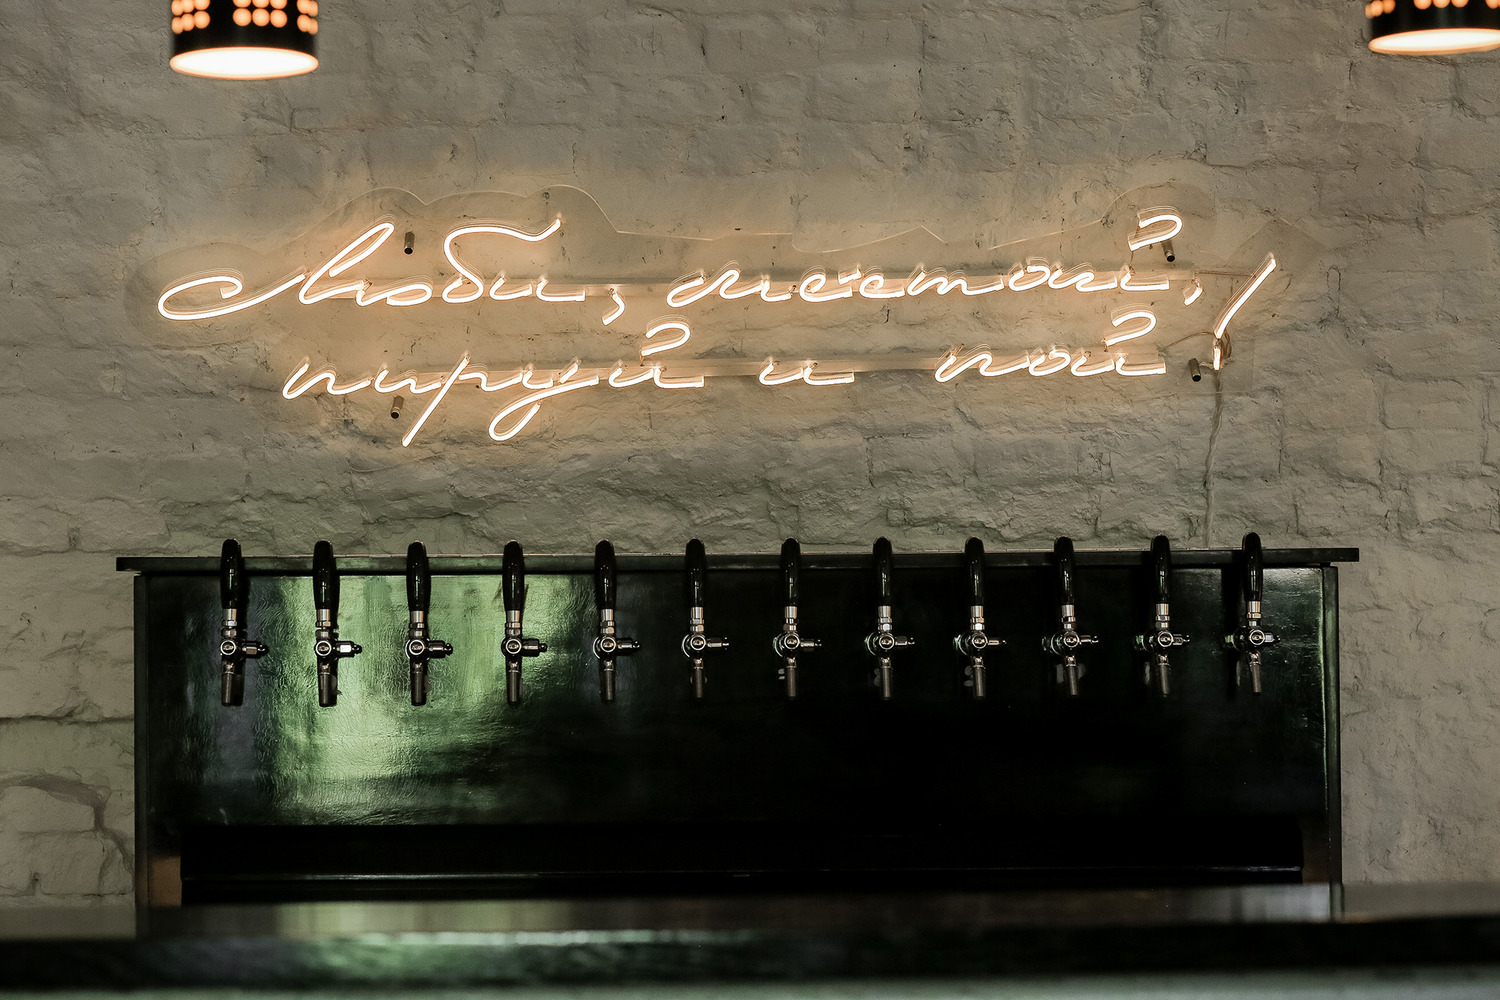 Люби, мечтай,
пируй и пой!